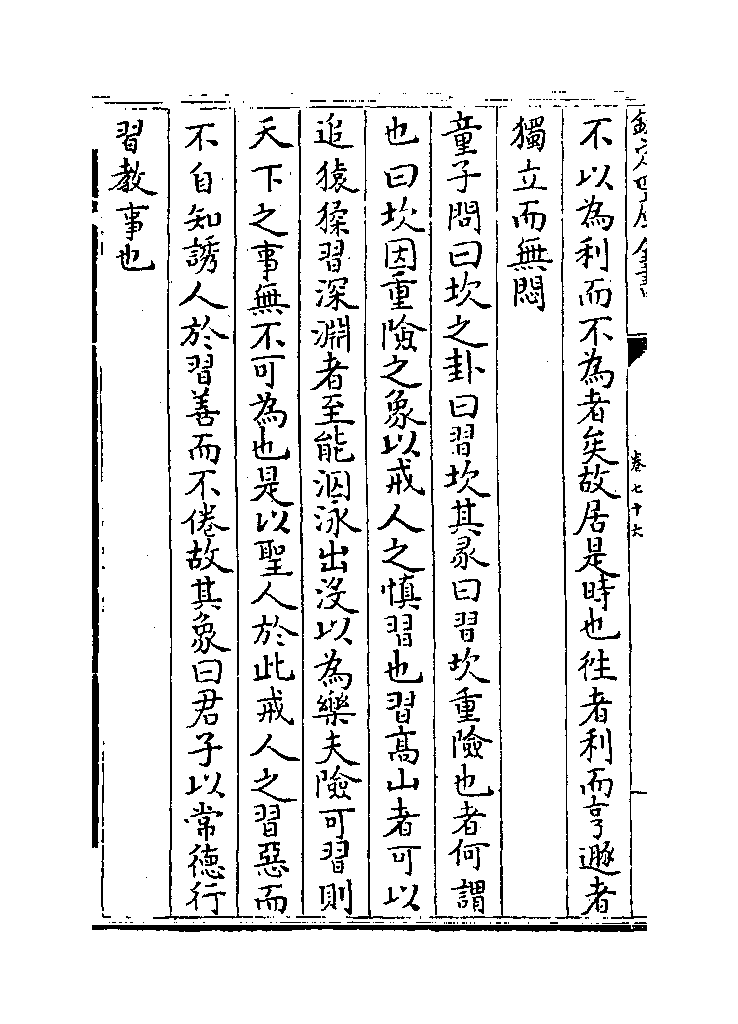 欽定四庫全書
卷七十六
不以為利而不為者矣故居是時也徃者利而亨遯者
獨立而無悶
童子問曰坎之卦曰習坎其彖曰習坎重險也者何謂
也曰坎因重險之象以戒人之慎習也習高山者可以
追猿猱習深淵者至能泅泳出沒以為樂夫險可習則
天下之事無不可為也是以聖人於此戒人之習惡而
不自知誘人於習善而不倦故其象曰君子以常徳行
習教事也